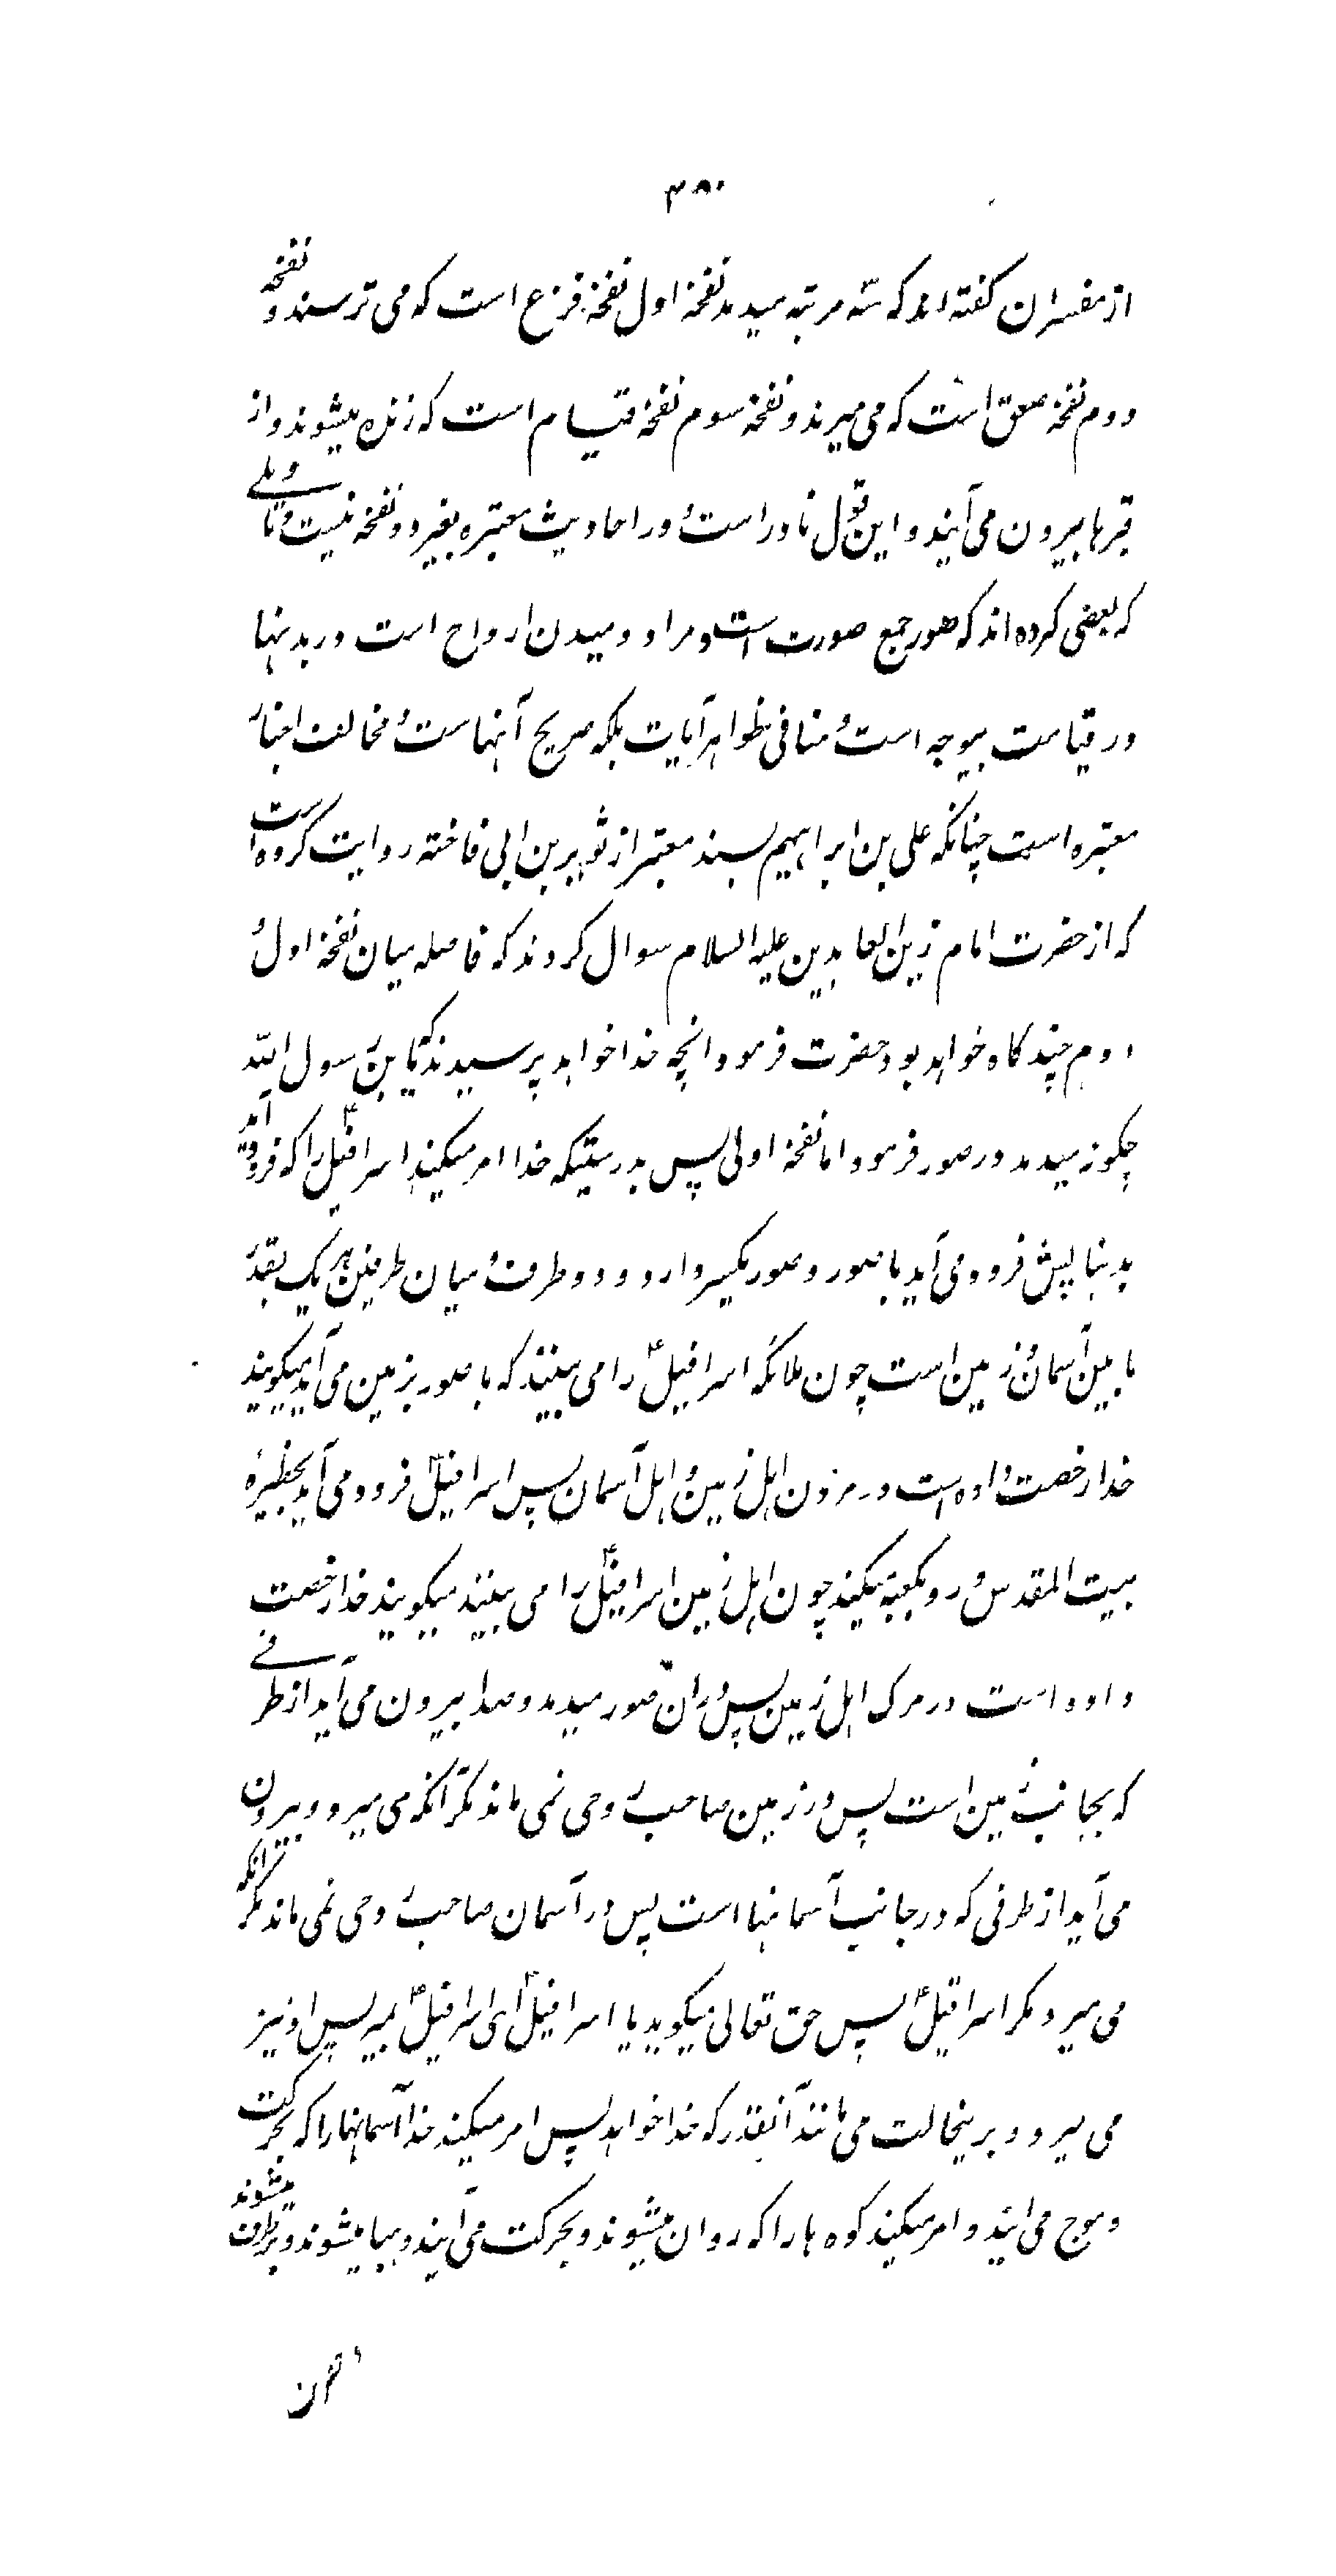 ۳۸۰
از مفسران گفته اند که سه مرتبه میدمد نفخهٔ اول نفخهٔ فزع است که می ترسند و نفخهٔ
دوم نفخهٔ صعق است که می میرند و نفخهٔ سوم نفخهٔ قیام است که زنده میشوند و از
قبرها بیرون می آیند و این قول نادر است و در احادیث معتبره بغیر دو نفخه نیست و تاویلے
که بعضی کرده اند که صور جمع صورت است و مراد دمیدن ارواح است در بدنها
در قیامت بیوجه است و منافی ظواهر آیات بلکه صریح آنهاست و مخالف اخبار
معتبره است چنانکه علی بن ابراهیم بسند معتبر از ثویر بن ابی فاخته روایت کرده است
که از حضرت امام زین العابدین علیه السلام سوال کردند که فاصله میان نفخهٔ اول و
دوم چند گاه خواهد بود حضرت فرمود انچه خدا خواهد پرسیدند که یابن رسول الله
چگونه میدمد در صور فرمود اما نفخهٔ اولی پس بدرستیکه خدا امر میکند اسرافیل را که فرود آید
بدنیا پس فرود می آید با صور و صور یکسر دارد و دو طرف و میان طرفین هر یک بقدر
مابین آسمان و زمین است چون ملائکه اسرافیل ع را می بینند که با صور بزمین می آید میگویند
خدا رخصت داده است در مردن اهل زمین و اهل آسمان پس اسرافیل ع فرود می آید بحظیرهٔ
بیت المقدس و رو بکعبه میکند چون اهل زمین اسرافیل ع را می بینند میگویند خدا رخصت
داده است در مرگ اهل زمین پس در ان صور میدمد و صدا بیرون می آید از طرفے
که بجانب زمین است پس در زمین صاحب روحی نمی ماند مگر آنکه می میرد و بیرون
می آید از طرفی که در جانب آسمانها است پس در آسمان صاحب روحی نمی ماند مگر آنکه
می میرد مگر اسرافیل ع پس حق تعالی میگوید یا اسرافیل ع ای اسرافیل ع بمیر پس او نیز
می میرد و برینحالت می مانند آنقدر که خدا خواهد پس امر میکند خدا آسمانها را که بحرکت
و موج می ایند و امر میکند کوه ها را که روان میشوند و بحرکت می آیند و هبا میشوند و برطرف میشوند